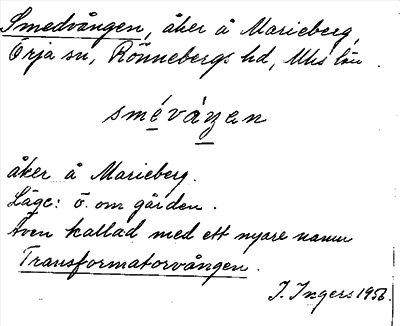 Smedvången, åker å Marieberg,
Örja sn, Rönnebergs hd, Mhs län.
sméváŋen
åker å Marieberg.
Läge: ö. om gården.
Även kallad med ett nyare namn
Transformatorvången.
I. Ingers 1956.